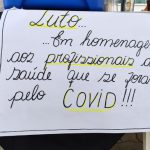 Luto...
...Em homenagem
aos profissionais d
saúde que se foram
pelo COVID!!!